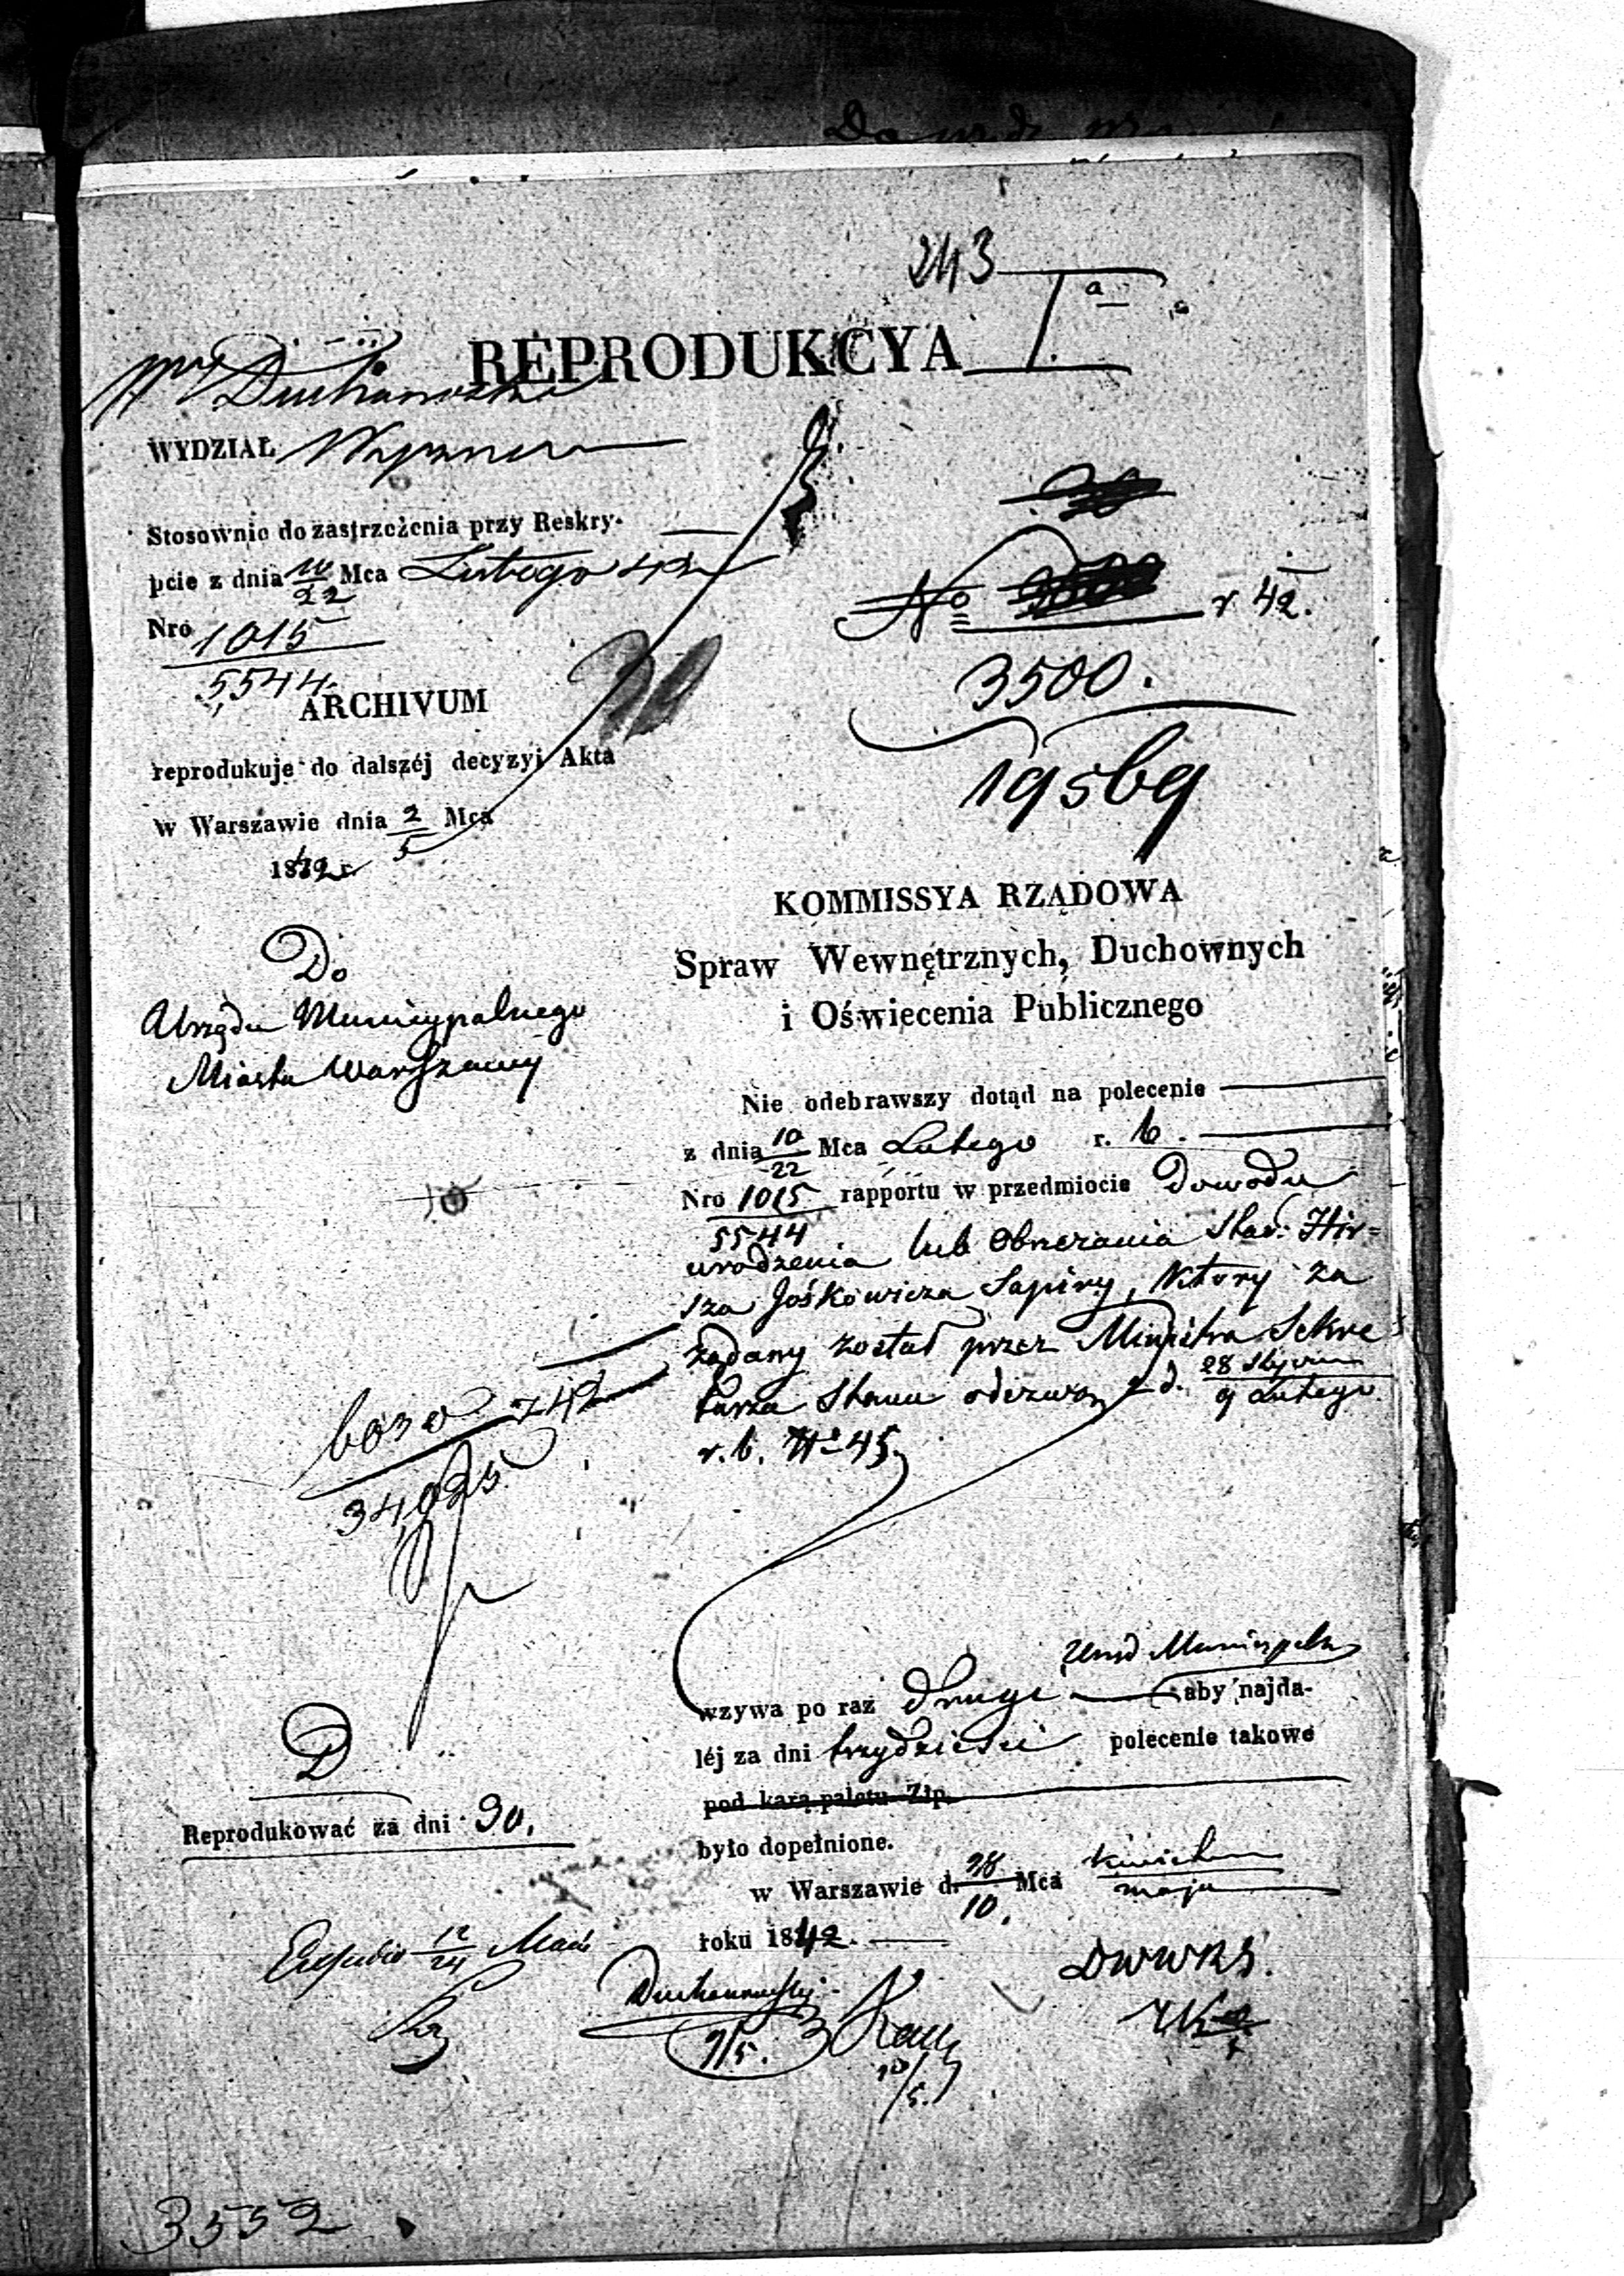 243
I a
REPRODUKCYA
Duchanowski
WYDZIAŁ Wyznań
Stosownie do zastrzeżenia przy Reskry-
pcie z dnia 10/22 Mca Lutego 42
Nro 1015
5544
ARCHIVUM
reprodukuje do dalszéj decyzyi Akta
w Warszawie dnia 2/5 Mca
1842 r
No r 42.
3500.
19569
KOMMISSYA RZĄDOWA
Spraw Wewnętrznych, Duchownych
i Oświecenia Publicznego
Do
Urzędu Municypalnego
Miasta Warszawy
Nie odebrawszy dotąd na polecenie
z dnia 10/22 Mca Lutego r. b.
Nro 1015/5544 rapportu w przedmiocie Dowodu
urodzenia lub Obrzezania Star. Hir=
sza Jośkowicza Sapiry, który za
żądany został przez Ministra Sekre
tarza Stanu odezwą z d. 28 Stycznia
9 Lutego
r. b. No 45.
34,025
wzywa po raz drugi Urząd Municypalny aby najda-
léj za dni trzydzieści polecenie takowe
pod karą paletu Złp.
było dopełnione.
w Warszawie d. 28/10 Mca Kwietnia
maja
roku 1842.
D
Reprodukować za dni 30.
12/24 Maia
Duchanowski
9/5.
10/5.
DWWRS.
3532